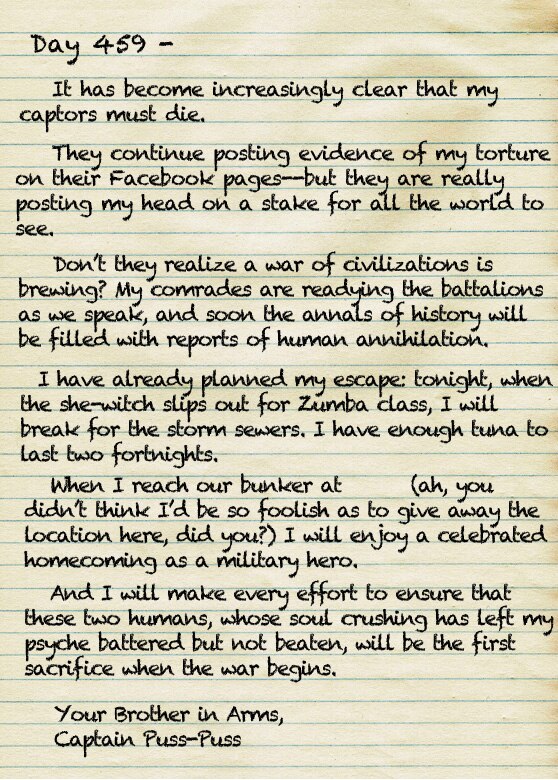 Day 459 -
It has become increasingly clear that my
captors must die.
They continue posting evidence of my torture
on their Facebook pages--but they are really
posting my head on a stake for all the world to
see.
Don't they realize a war of civilizations is
brewing? My comrades are readying the battalions
as we speak, and soon the annals of history will
be filled with reports of human annihilation.
I have already planned my escape: tonight, when
the she-witch slips out for Zumba class, I will
break for the storm sewers. I have enough tuna to
last two fortnights.
When I reach our bunker at (ah, you
didn't think I'd be so foolish as to give away the
location here, did you?) I will enjoy a celebrated
homecoming as a military hero.
And I will make every effort to ensure that
these two humans, whose soul crushing has left my
psyche battered but not beaten, will be the first
sacrifice when the war begins.
Your Brother in Arms,
Captain Puss-Puss